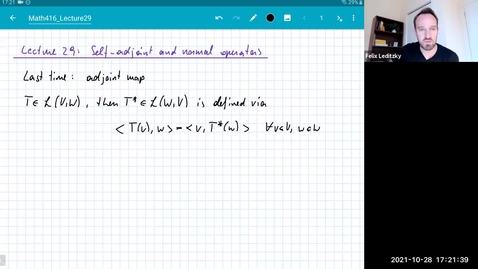 17:21
Math416_Lecture29
Lecture 29: Self-adjoint and normal operators
Last time: adjoint map
T ∈ ℒ(V,W), then T* ∈ ℒ(W,V) is defined via
< T(v), w > = < v, T*(w) > ∀v∈V, w∈W
Felix Leditzky
2021-10-28 17:21:39